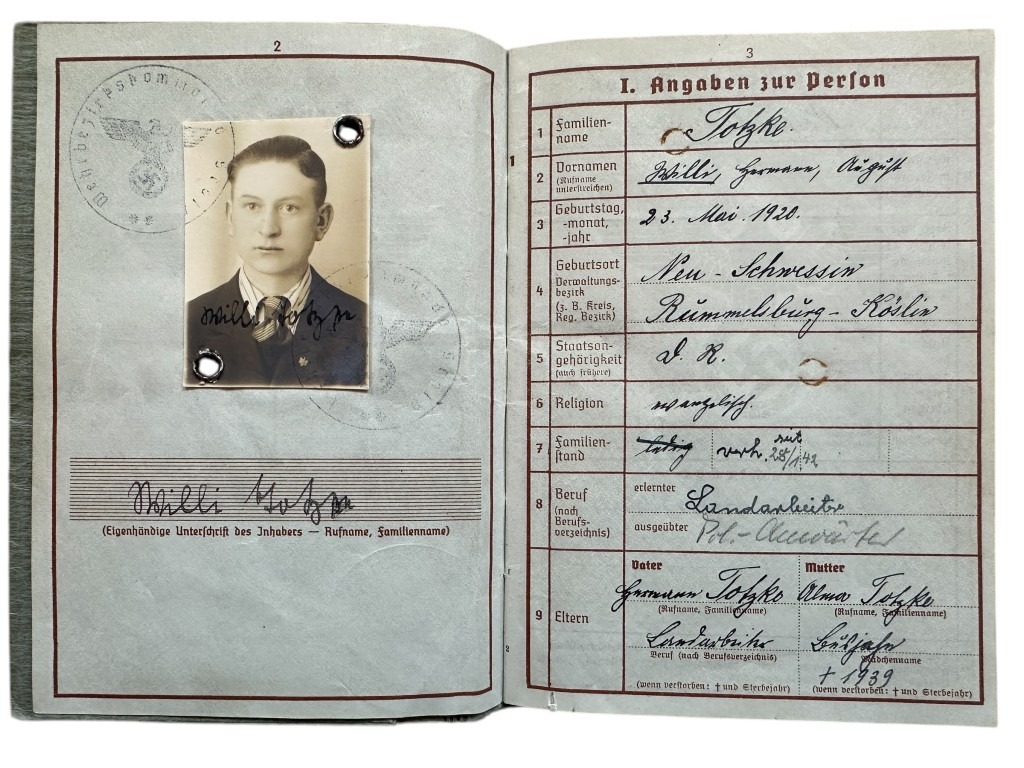 2
Willi Totzke
Willi Totzke
(Eigenhändige Unterschrift des Inhabers — Rufname, Familienname)
3
I. Angaben zur Person
1
1 Familien-
name
Totzke.
2 Vornamen
(Rufname
unterstreichen)
Willi, Hermann, August
3 Geburtstag,
-monat,
-jahr
23. Mai 1920.
4 Geburtsort
Verwaltungs-
bezirk
(z. B. Kreis,
Reg. Bezirk)
Neu-Schwessin
Rummelsburg-Köslin
5 Staatsan-
gehörigkeit
(auch frühere)
D. R.
6 Religion
evangelisch.
7 Familien-
stand
ledig verh. seit
28/1.42
8 Beruf
(nach
Berufs-
verzeichnis)
erlernter Landarbeiter
ausgeübter Pol.-Anwärter
9 Eltern
Vater Mutter
Hermann Totzke Alma Totzke
(Rufname, Familienname) (Rufname, Familienname)
Landarbeiter
Beruf (nach Berufsverzeichnis) Mädchenname
† 1939
(wenn verstorben: † und Sterbejahr) (wenn verstorben: † und Sterbejahr)
2